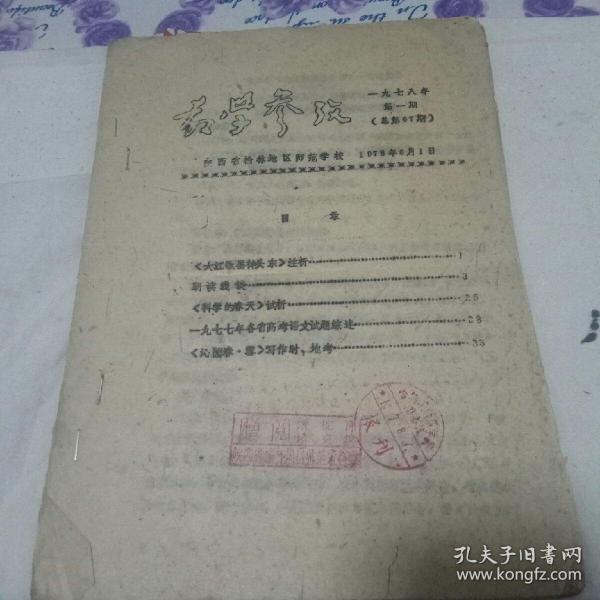 教学参考
一九七八年
第一期
(总第07期)
陕西省榆林地区师范学校 1978年6月1日
目 录
《大江歌罢掉头东》注析 1
朗读浅谈 3
《科学的春天》试析 25
一九七七年各省高考语文试题综述 28
《沁园春·雪》写作时、地考 33
报刊
孔夫子旧书网
www.kongfz.com